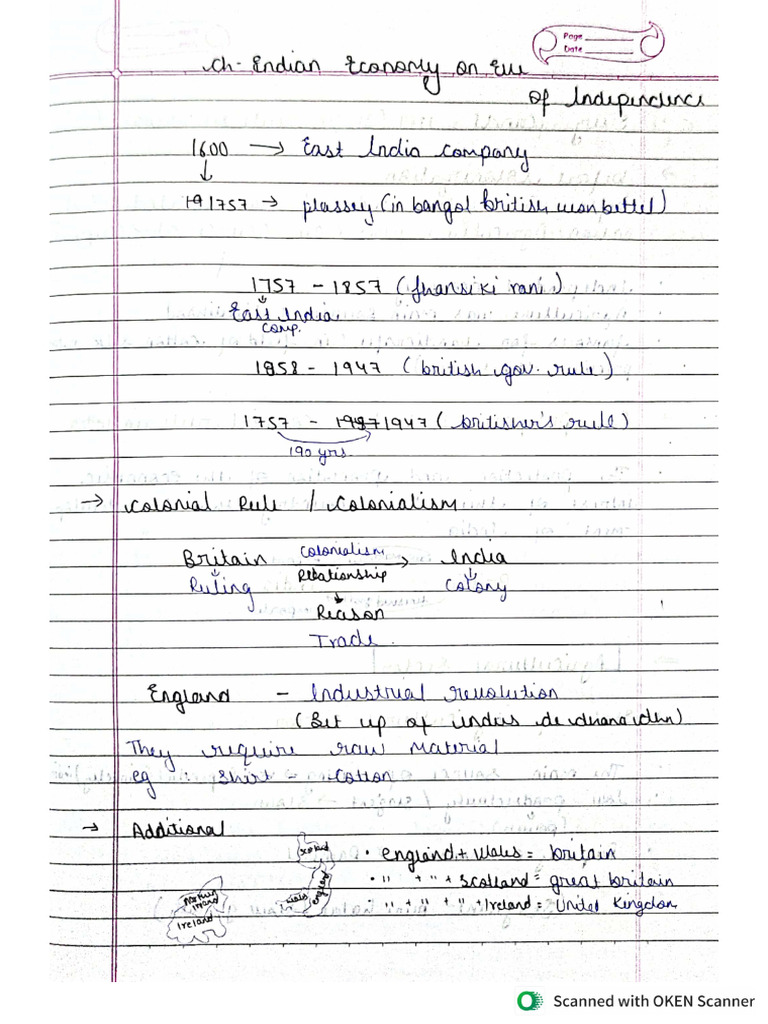 Page
Date
Ch- Indian Economy on Eve
of Independence
1600 → East India company
↓
191757 → plassey (in bangol british won bettel)
1757 - 1857 (jhansi ki rani)
↓
East India
comp.
1858 - 1947 (british gov. rule)
1757 - 19471947 (britisher's rule)
190 yrs.
→ Colonial Rule / Colonialism
Britain Colonialism → India
↓ Relationship ↓
Ruling Colony
↓
Reason
Trade.
England - Industrial revolution
(Set up of indus
They require raw material
eg shirt - cotton
→ Additional
scotland
• england + Wales = britain
• " + " + scotland = great britain
wales england
" + " + " + Ireland = United Kingdom
Northern
Ireland
Ireland
Scanned with OKEN Scanner